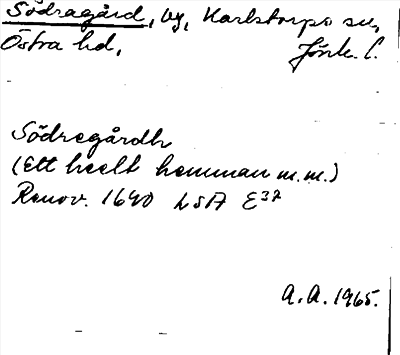 Södragård, by, Karlstorps sn,
Östra hd, Jönk. l.
Södregårdh
(Ett heelt hemman m.m.)
Renov. 1640 LSA E³²
A.A. 1965.